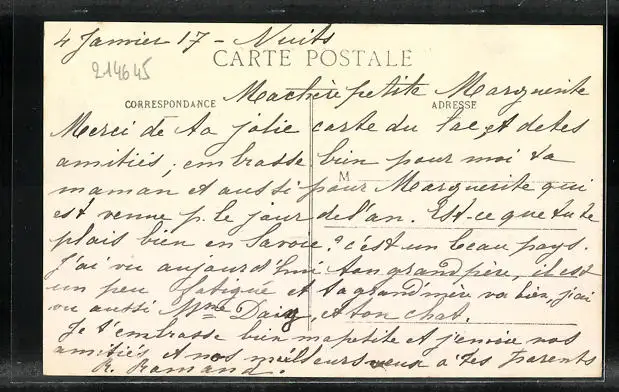 4 Janvier 17 - Nuits
CARTE POSTALE
214645
CORRESPONDANCE
ADRESSE
Ma chère petite Marguerite
Merci de ta jolie carte du lac, et de tes
amitiés, embrasse bien pour moi ta
M
maman et aussi pour Marguerite qui
est venue p. le jour de l'an. Est-ce que tu te
plais bien en Savoie? c'est un beau pays.
J'ai vu aujourd'hui ton grand père, il est
un peu fatigué et ta grand'mère va bien, j'ai
vu aussi Mme, et ton chat.
Je t'embrasse bien ma petite et j'envoie nos
amitiés et nos meilleurs voeux à tes parents
R.